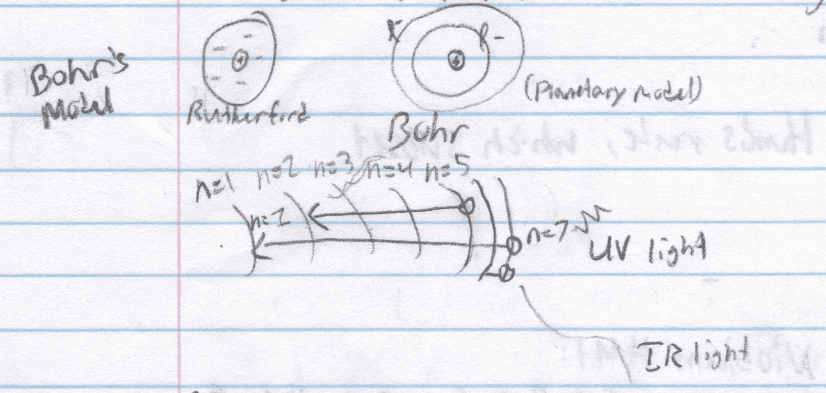 Bohr's
Model
Rutherford
Bohr
(Planetary Model)
n=1 n=2 n=3 n=4 n=5
n=2
n=7
UV light
IR light